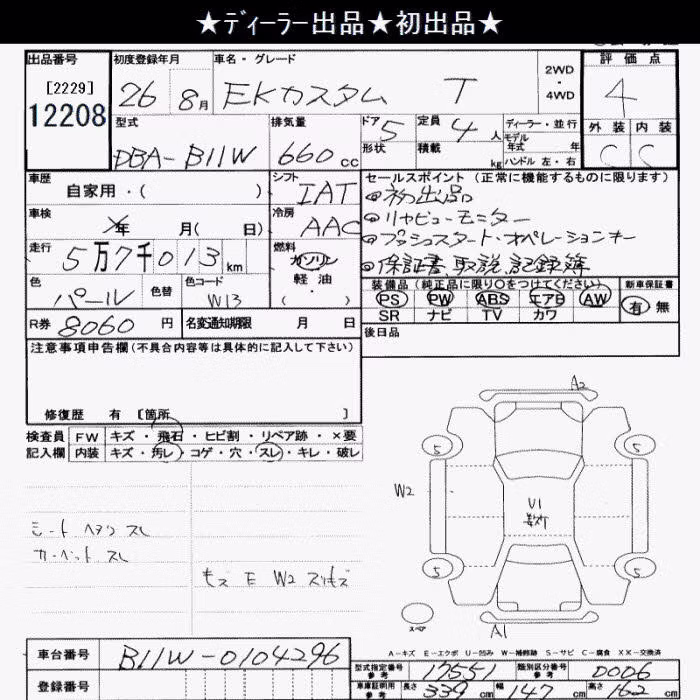 ★ディーラー出品★初出品★
出品番号 初度登録年月 車名・グレード 評価点
[2229]
12208
26 8月 EKカスタム T
2WD
・
4WD
4
外装 内装
C C
型式 排気量 ドア 定員 ディーラー・並行
DBA-B11W 660cc 5 4人
モデル
年式 年
形状 積載 kg ハンドル 左・右
車歴 シフト セールスポイント (正常に機能するものに限ります)
自家用・( ) IAT
初出品
車検 冷房 リヤビューモニター
年 月( 日) AAC
プッシュスタート・オペレーションキー
走行 燃料
5万7千013km ガソリン 保証書 取説 記録簿
軽油
( )
色 色替 色コード
パール W13
装備品 (純正品に限り○をつけてください) 新車保証書
PS PW ABS エアB AW 有 無
SR ナビ TV カワ
R券 8060円 名変通知期限 月 日
後日品
注意事項申告欄(不具合内容等は具体的に記入して下さい)
修復歴 有 [箇所 ]
検査員 FW キズ・飛石・ヒビ割・リペア跡・×要
記入欄 内装 キズ・汚レ・コゲ・穴・スレ・キレ・破レ
A2
5 5
W2
U1
シートヘタリ スレ
カーペット スレ
5 5
スペア
A1
A-キズ E-エクボ U-凹み W-補修跡 S-サビ C-腐食 XX-交換済
車台番号 B11W-0104296
登録番号
型式指定番号 参考 17551 類別区分番号 参考 0006
車庫証明用 参考 長さ 339cm 幅 147cm 高さ 162cm